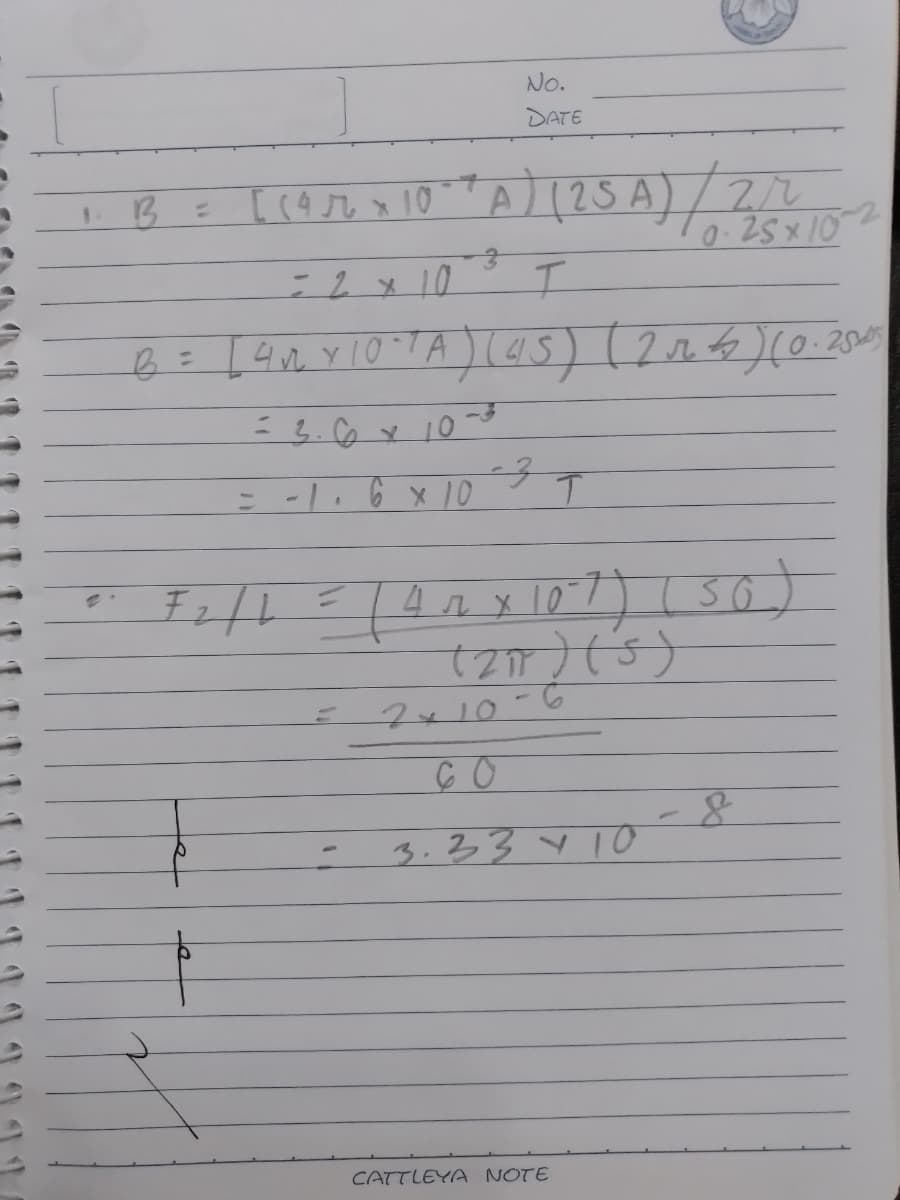 No.
DATE
1. B = [(4π x 10^-7 A)(25A)/2π
0.25 x 10^-2
= 2 x 10^-3 T
B = [4π x 10^-7 A)(45) (2π )(0.25
= 3.6 x 10^-3
= -1.6 x 10^-3 T
2. F2/L = (4π x 10^-7) (50)
(2π)(5)
= 2 x 10^-6
60
= 3.33 x 10^-8
CATTLEYA NOTE